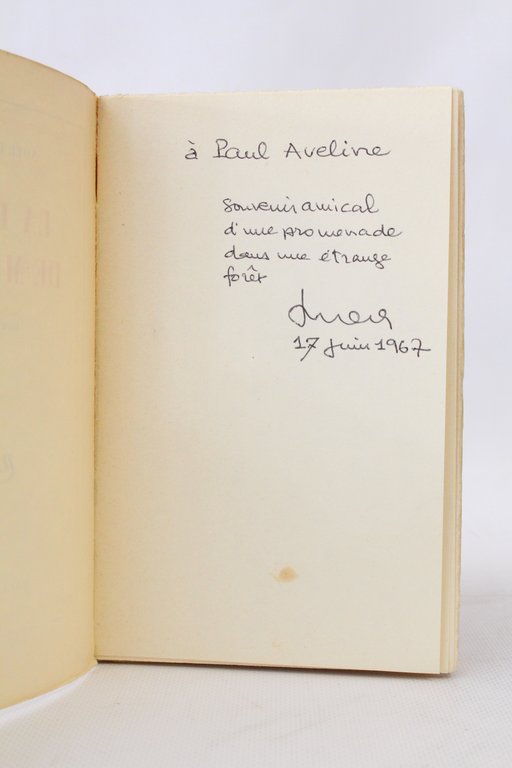 à Paul Aveline
souvenir amical
d'une promenade
dans une étrange
forêt
17 juin 1967